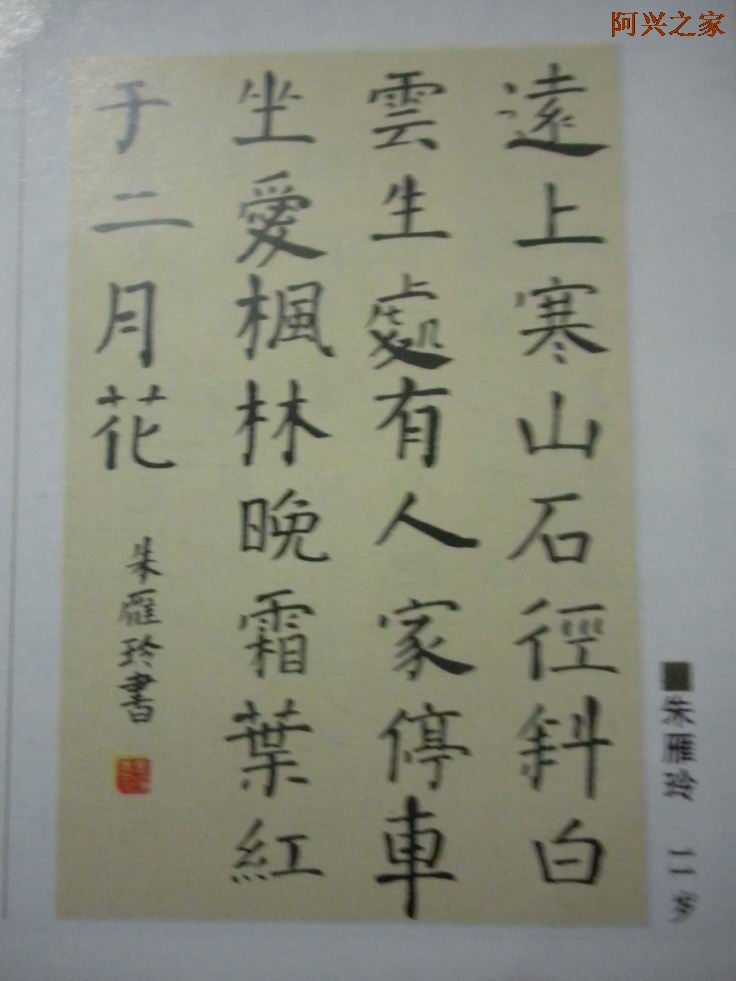 阿兴之家
遠上寒山石徑斜白
雲生處有人家停車
坐愛楓林晚霜葉紅
于二月花
朱雁玲書
朱雁玲 二一岁